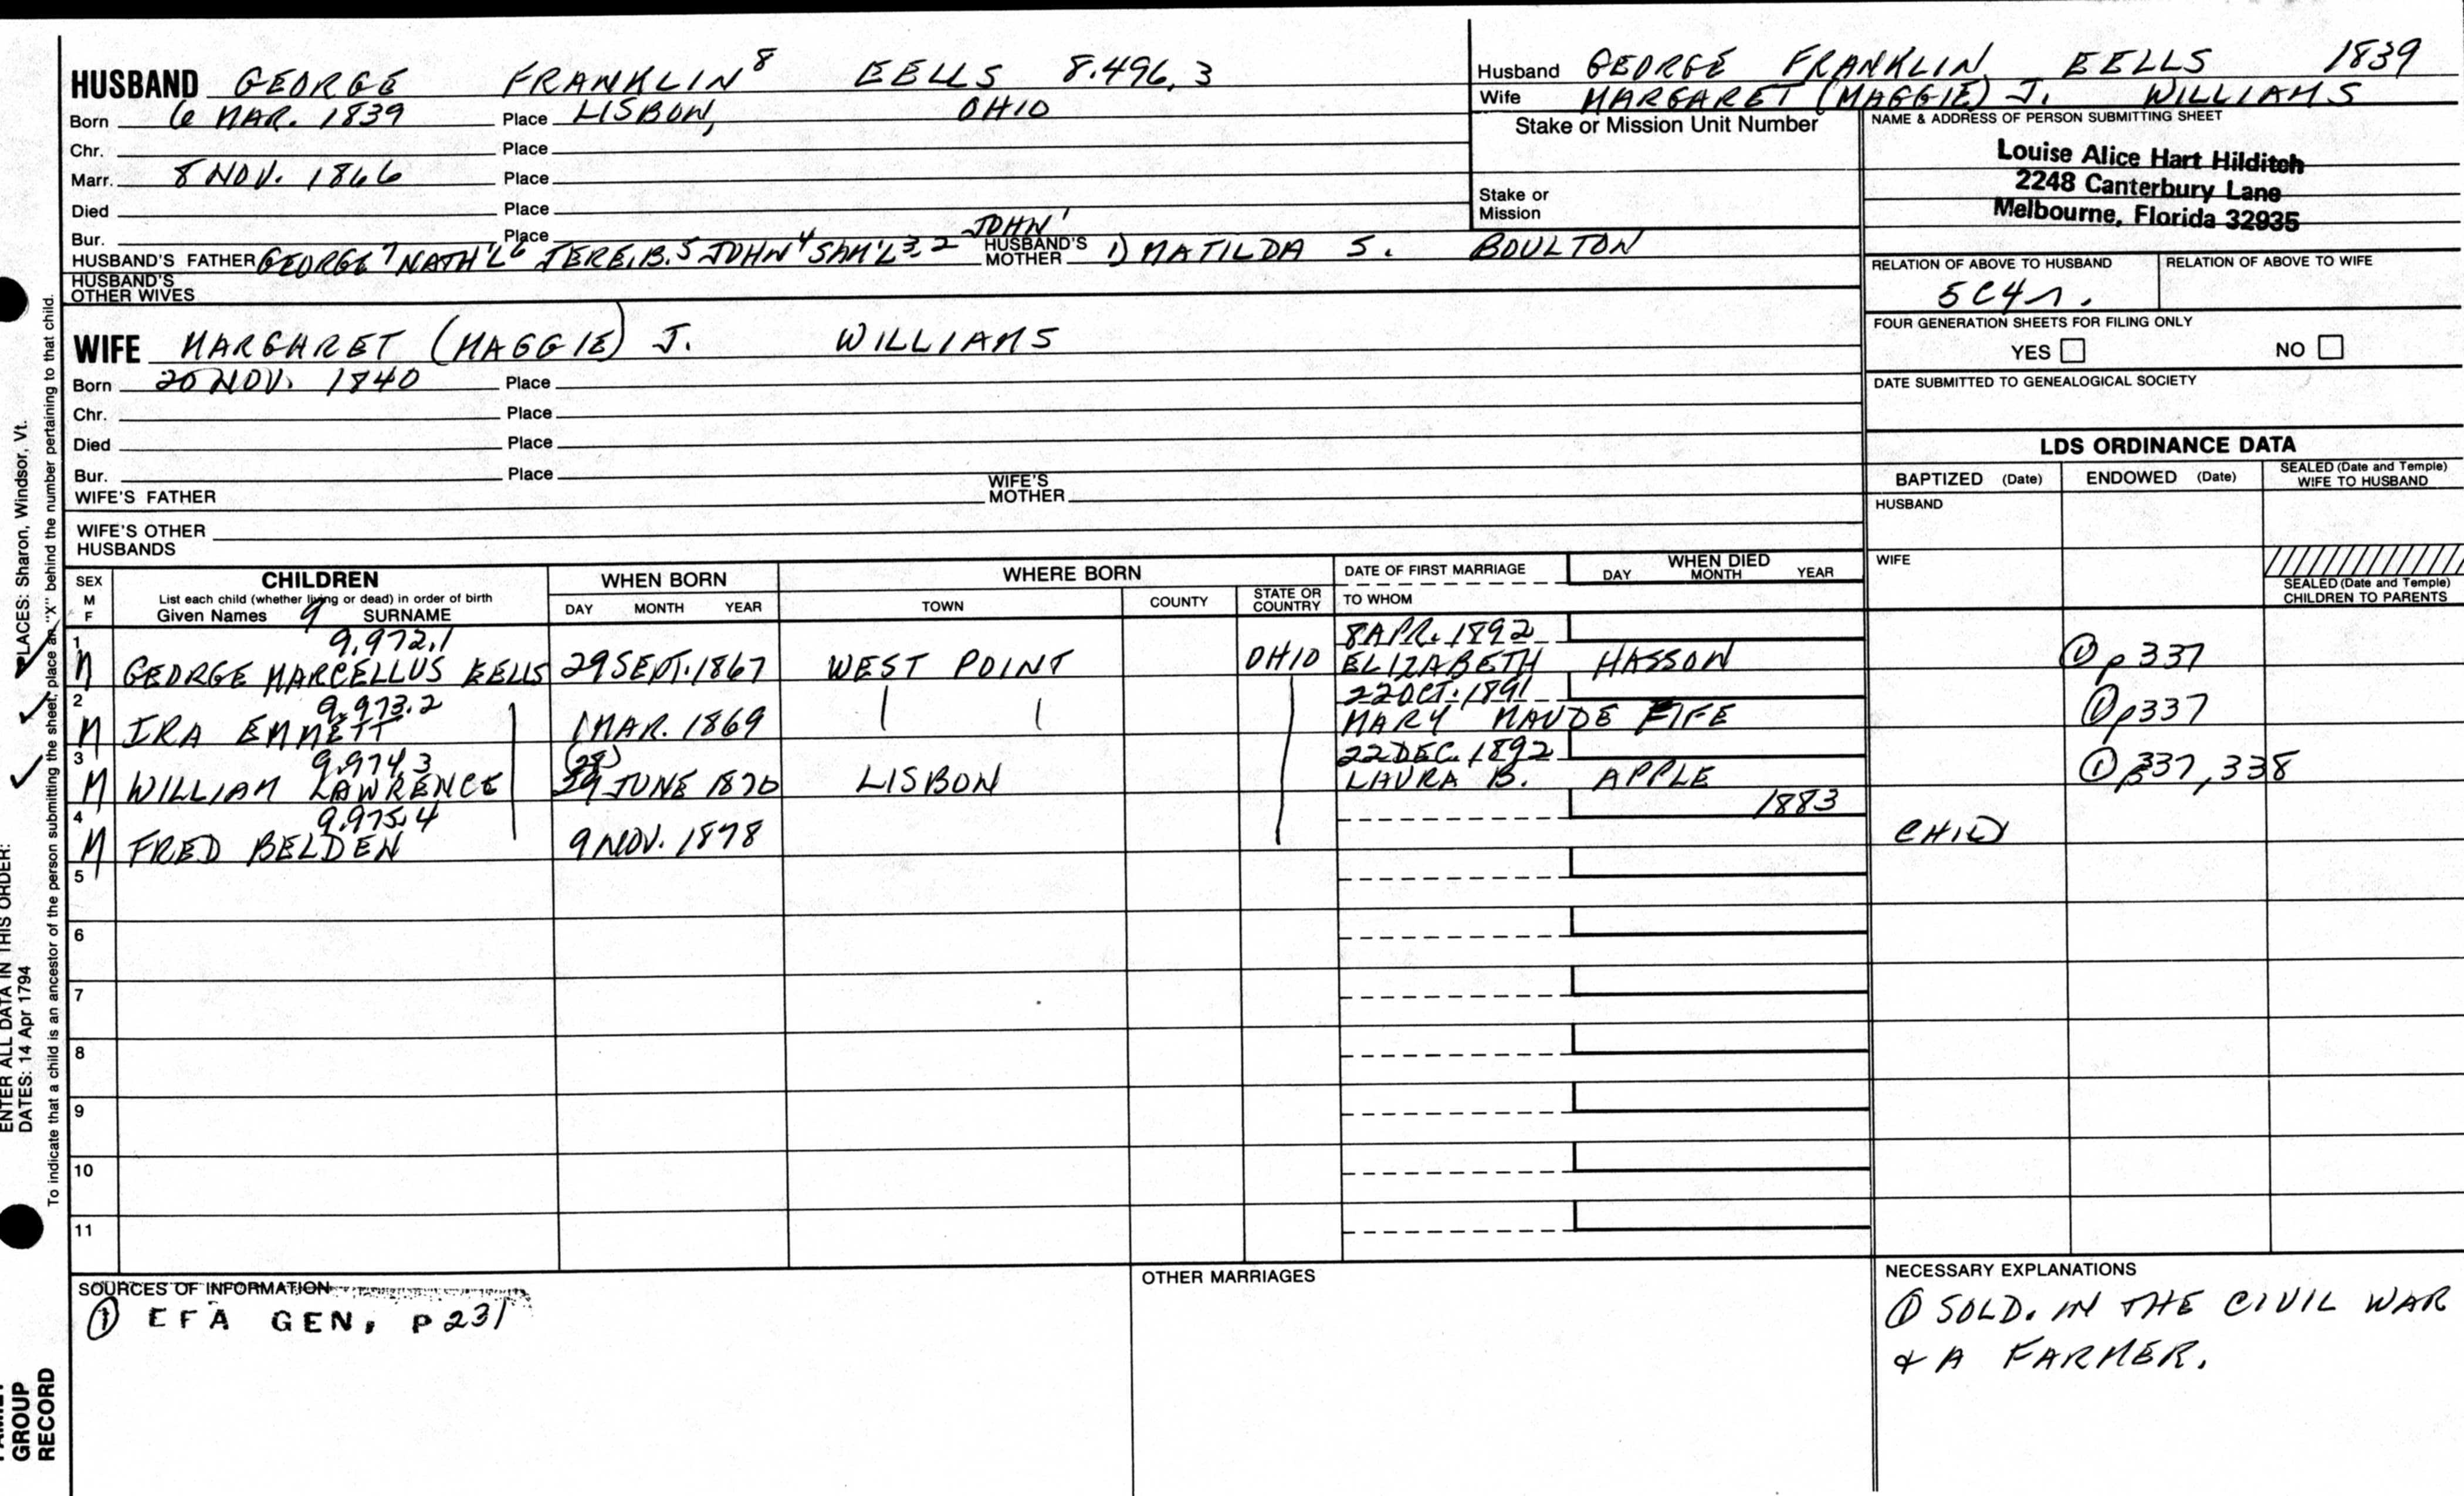 HUSBAND GEORGE FRANKLIN⁸ EELLS 8.496,3
Born 6 MAR. 1839 Place LISBON, OHIO
Chr. Place
Marr. 8 NOV. 1866 Place
Died Place
Bur. Place
HUSBAND'S FATHER GEORGE⁷ NATH'L⁶ JERE.B.⁵ JOHN⁴ SAM'L³,² JOHN¹ HUSBAND'S MOTHER 1) MATILDA S. BOULTON
HUSBAND'S OTHER WIVES
Husband GEORGE FRANKLIN EELLS 1839
Wife MARGARET (MAGGIE) J. WILLIAMS
Stake or Mission Unit Number
Stake or
Mission
NAME & ADDRESS OF PERSON SUBMITTING SHEET
Louise Alice Hart Hilditch
2248 Canterbury Lane
Melbourne, Florida 32935
RELATION OF ABOVE TO HUSBAND RELATION OF ABOVE TO WIFE
5C4r.
FOUR GENERATION SHEETS FOR FILING ONLY
YES NO
DATE SUBMITTED TO GENEALOGICAL SOCIETY
WIFE MARGARET (MAGGIE) J. WILLIAMS
Born 20 NOV. 1840 Place
Chr. Place
Died Place
Bur. Place
WIFE'S FATHER WIFE'S MOTHER
WIFE'S OTHER
HUSBANDS
LDS ORDINANCE DATA
BAPTIZED (Date) ENDOWED (Date) SEALED (Date and Temple) WIFE TO HUSBAND
HUSBAND
WIFE
SEALED (Date and Temple) CHILDREN TO PARENTS
SEX M F CHILDREN List each child (whether living or dead) in order of birth Given Names 9 SURNAME
WHEN BORN DAY MONTH YEAR
WHERE BORN TOWN COUNTY STATE OR COUNTRY
DATE OF FIRST MARRIAGE TO WHOM
WHEN DIED DAY MONTH YEAR
1 9.972.1 8 APR. 1892
M GEORGE MARCELLUS EELLS 29 SEPT. 1867 WEST POINT OHIO ELIZABETH HASSON ① p 337
2 9.973.2 22 OCT. 1891
M IRA EMMETT 1 MAR. 1869 MARY MAUDE FIFE ① p337
3 9.974.3 (28) 22 DEC. 1892
M WILLIAM LAWRENCE 29 JUNE 1870 LISBON LAURA B. APPLE ① p337, 338
4 9.975.4 1883
M FRED BELDEN 9 NOV. 1878 CHILD
5
6
7
8
9
10
11
SOURCES OF INFORMATION
① EFA GEN, P231
OTHER MARRIAGES
NECESSARY EXPLANATIONS
① SOLD. IN THE CIVIL WAR
& A FARMER.
ENTER ALL DATA IN THIS ORDER:
DATES: 14 Apr 1794 PLACES: Sharon, Windsor, Vt.
To indicate that a child is an ancestor of the person submitting the sheet, place an "X" behind the number pertaining to that child.
GROUP
RECORD